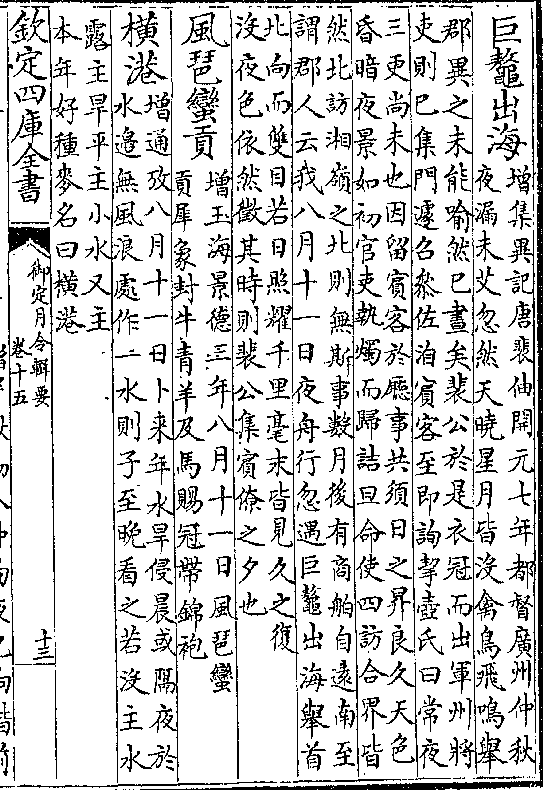 巨鼇出海增集異記唐裴伷開元七年都督廣州仲秋
夜漏未艾忽然天曉星月皆没禽鳥飛鳴舉
郡異之未能喻然已晝矣裴公於是衣冠而出軍州將
吏則已集門遽召叅佐洎賓客至即詢挈壺氏曰常夜
三更尚未也因留賓客於㕔事共須日之昇良久天色
昏暗夜景如初官吏執燭而歸詰旦命使四訪合界皆
然北訪湘嶺之北則無斯事數月後有商舶自遠南至
謂郡人云我八月十一日夜舟行忽遇巨鼇出海舉首
北向而雙目若日照耀千里毫末皆見久之復
没夜色依然徵其時則裴公集賓僚之夕也
風琶蠻貢增玉海景德三年八月十一日風琶蠻
貢犀象封牛青羊及馬賜冠帶錦袍
橫港增通攷八月十一日卜来年水旱侵晨或隔夜於
水邉無風浪處作一水則子至晚看之若没主水
露主旱平主小水又主
本年好種麥名曰橫港
欽定四庫全書
御定月令輯要
卷十五
十三